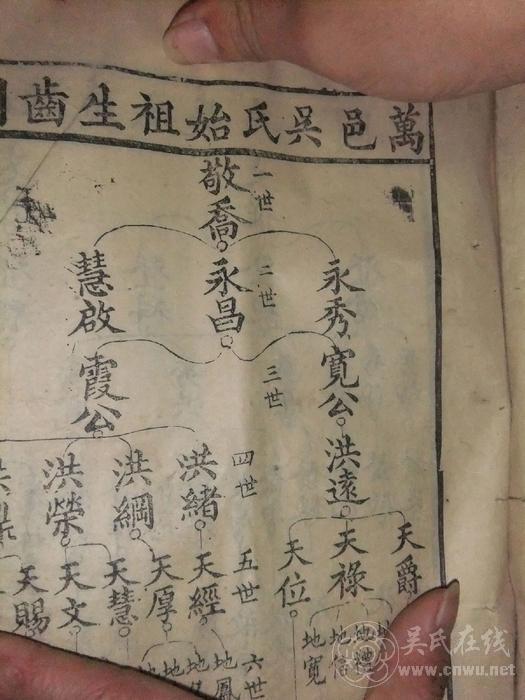 萬邑吳氏始祖生齒
一世
敬喬
二世
永秀 永昌 慧啟
三世
寬公 霞公
四世
洪遠 洪緒 洪綱 洪榮
五世
天爵 天祿 天位 天經 天厚 天慧 天文 天賜
六世
地禮 地信 地寬 地鳳
吴氏在线
www.cnwu.net